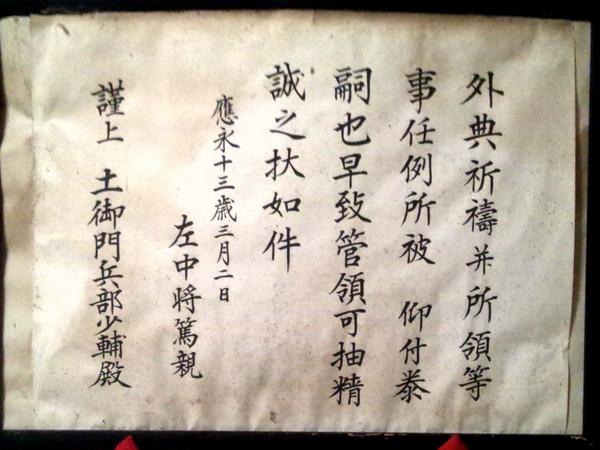 外典祈禱并所領等
事任例所被　仰付泰
嗣也早致管領可抽精
誠之扶如件
應永十三歳三月二日
左中将篤親
謹上　土御門兵部少輔殿